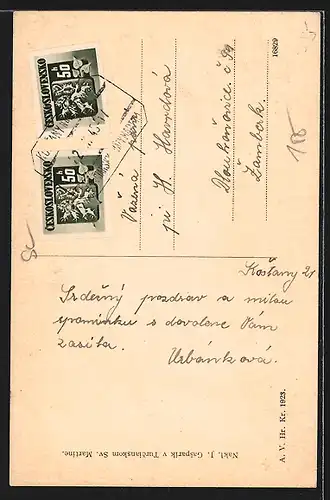 ČESKOSLOVENSKO
50 h
ČESKOSLOVENSKO
50 h
16829
Vážená paní
pí H. Havrdová
Dlouhoňovice č 99
Žamberk.
Košťany 21
Srdečný pozdrav a milou
vzpomínku s dovolené Vám
zasílá.
Urbánková.
Nakl. J. Gašparík v Turčianskom Sv. Martine.
A. V. Hr. Kr. 1923.